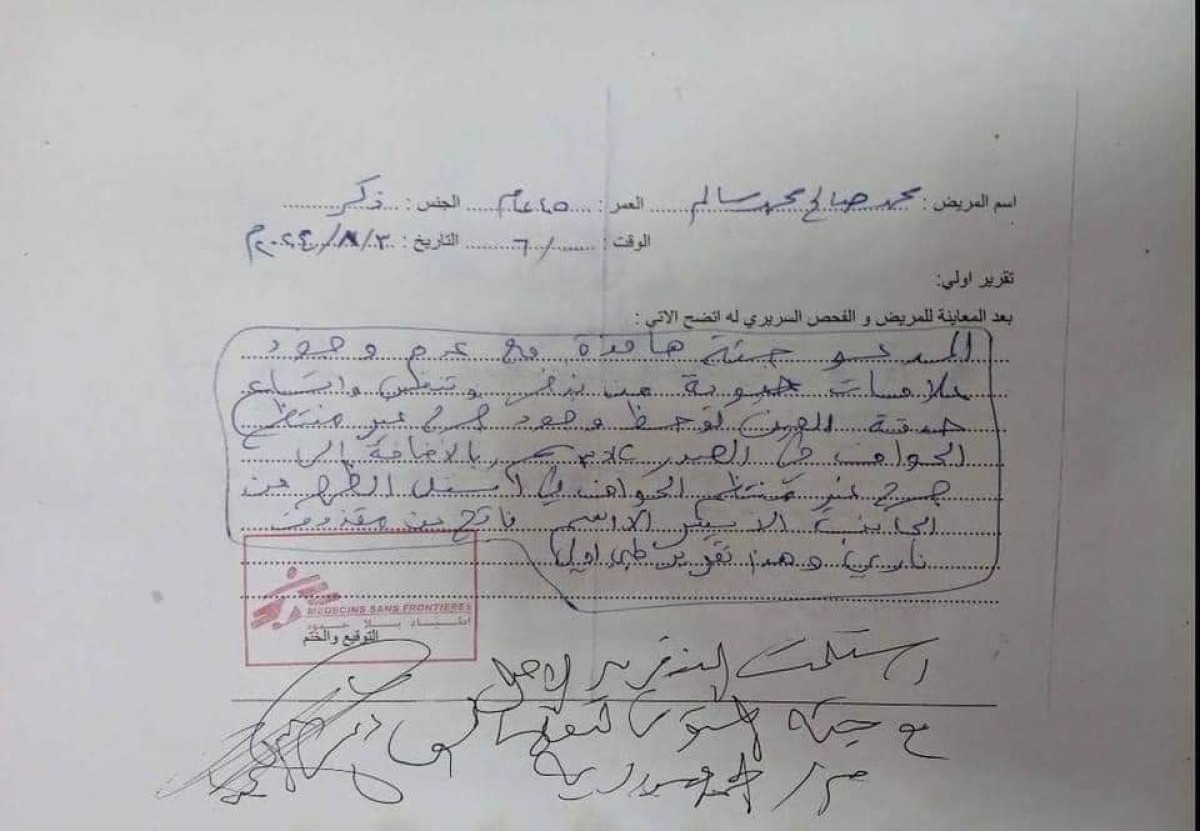 اسم المريض : محمد صالح محمد سالم العمر : عام الجنس : ذكر
الوقت : ٦/ التاريخ : ٢٠٢٤/٨/٣م
تقرير اولي:
بعد المعاينة للمريض و الفحص السريري له اتضح الاتي :
المدعو جثة هامدة مع عدم وجود
علامات حيوية من نبض وتنفس واتساع
حدقة العين لوحظ وجود جرح غير منتظم
الحواف في الصدر بالاضافة الى
جرح غير منتظم الحواف في اسفل الظهر من
الجانب الايسر ناتج من مقذوف
ناري وهذا تقرير طبي اولي
MEDECINS SANS FRONTIERES
اطباء بلا حدود
التوقيع والختم
استلمت التقرير الاصل
مع جثة